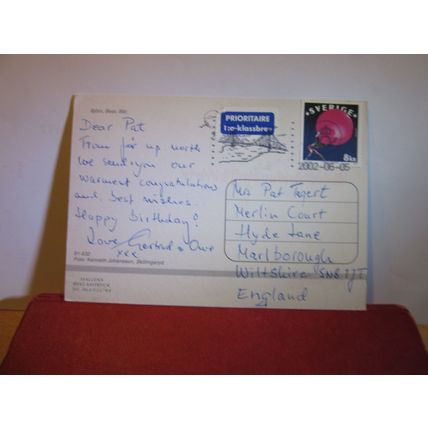 Björn. Bear. Bär.
PRIORITAIRE
1:a-klassbrev
SVERIGE
8kr
2002-06-05
Dear Pat
From far up north
we send you our
warmest congratulations
and best wishes.
Happy Birthday!
Love Gertrud & Owe
xxx
Mrs Pat Tagert
Merlin Court
Hyde Lane
Marlborough
Wiltshire SN8 1JT
England
Foto: Kenneth Johansson, Skillingaryd